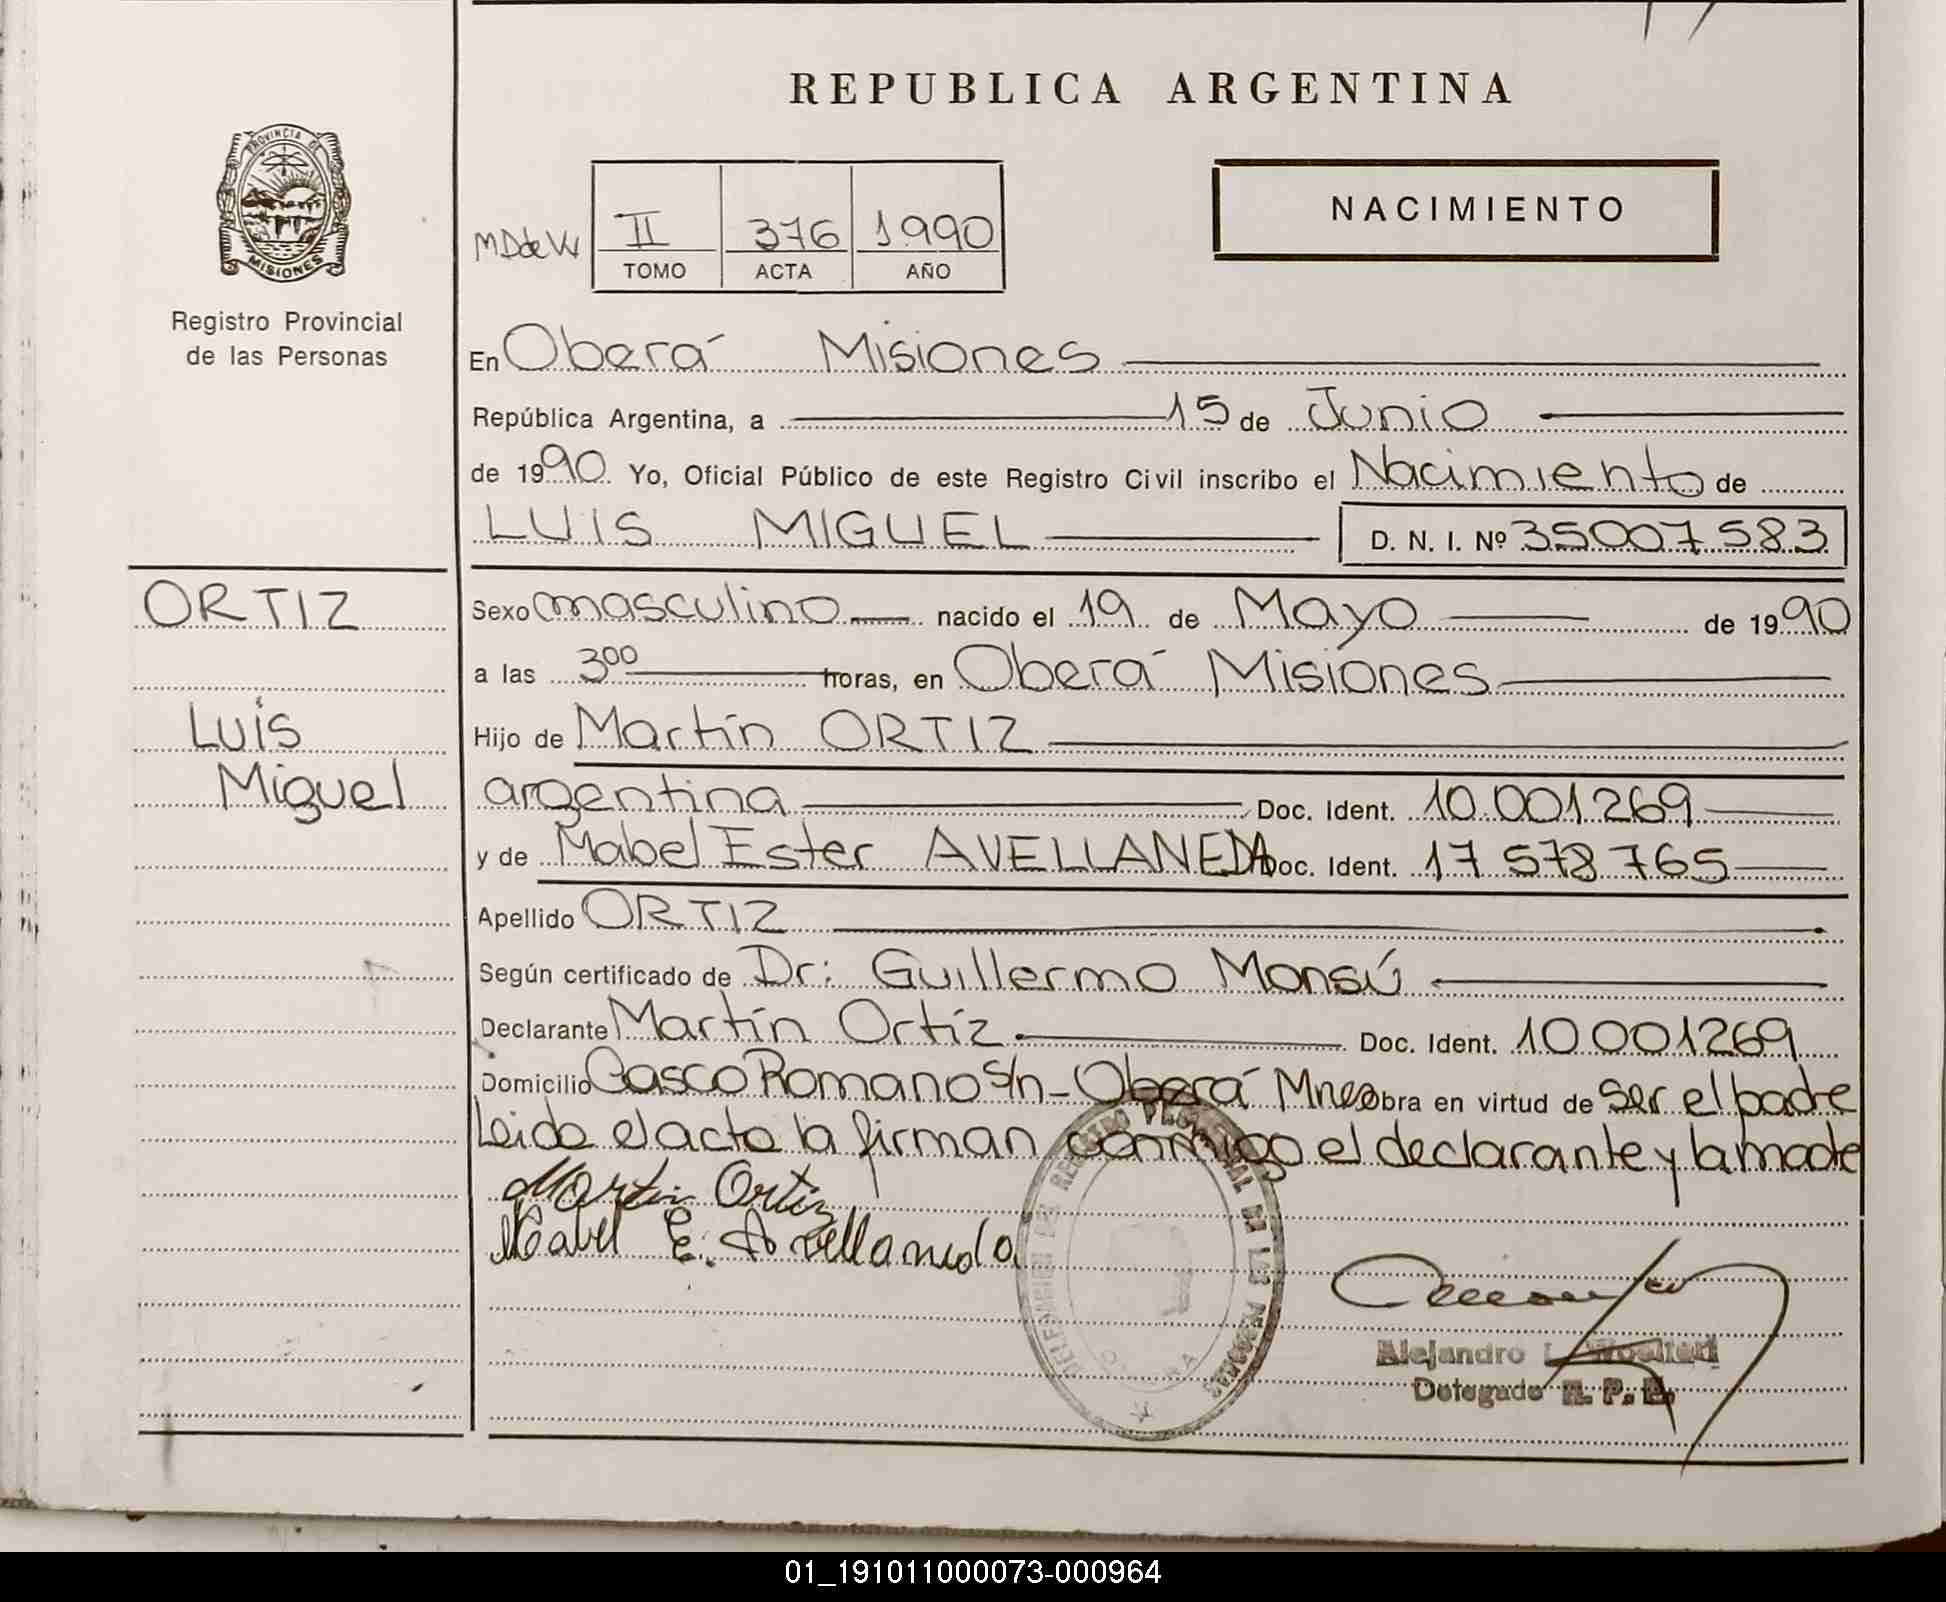 REPUBLICA ARGENTINA
PROVINCIA DE
MISIONES
Registro Provincial
de las Personas
MDdeW II 376 1990
TOMO ACTA AÑO
NACIMIENTO
En Oberá Misiones
República Argentina, a 15 de Junio
de 1990. Yo, Oficial Público de este Registro Civil inscribo el Nacimiento de
LUIS MIGUEL D. N. I. Nº 35007583
ORTIZ
Luis
Miguel
Sexo masculino nacido el 19 de Mayo de 1990
a las 3 00 horas, en Oberá Misiones
Hijo de Martín ORTIZ
argentina Doc. Ident. 10.001269
y de Mabel Ester AVELLANEDA Doc. Ident. 17 578 765
Apellido ORTIZ
Según certificado de Dr: Guillermo Monsú
Declarante Martín Ortíz Doc. Ident. 10 001269
Domicilio Casco Romano S/n - Oberá Mnes obra en virtud de ser el padre
Leida el acta la firman conmigo el declarante y la madre
Martin Ortiz
Mabel E. Avellaneda
DELEGACION DEL REGISTRO PROVINCIAL DE LAS PERSONAS
Alejandro
Delegado R. P. P.
01_191011000073-000964